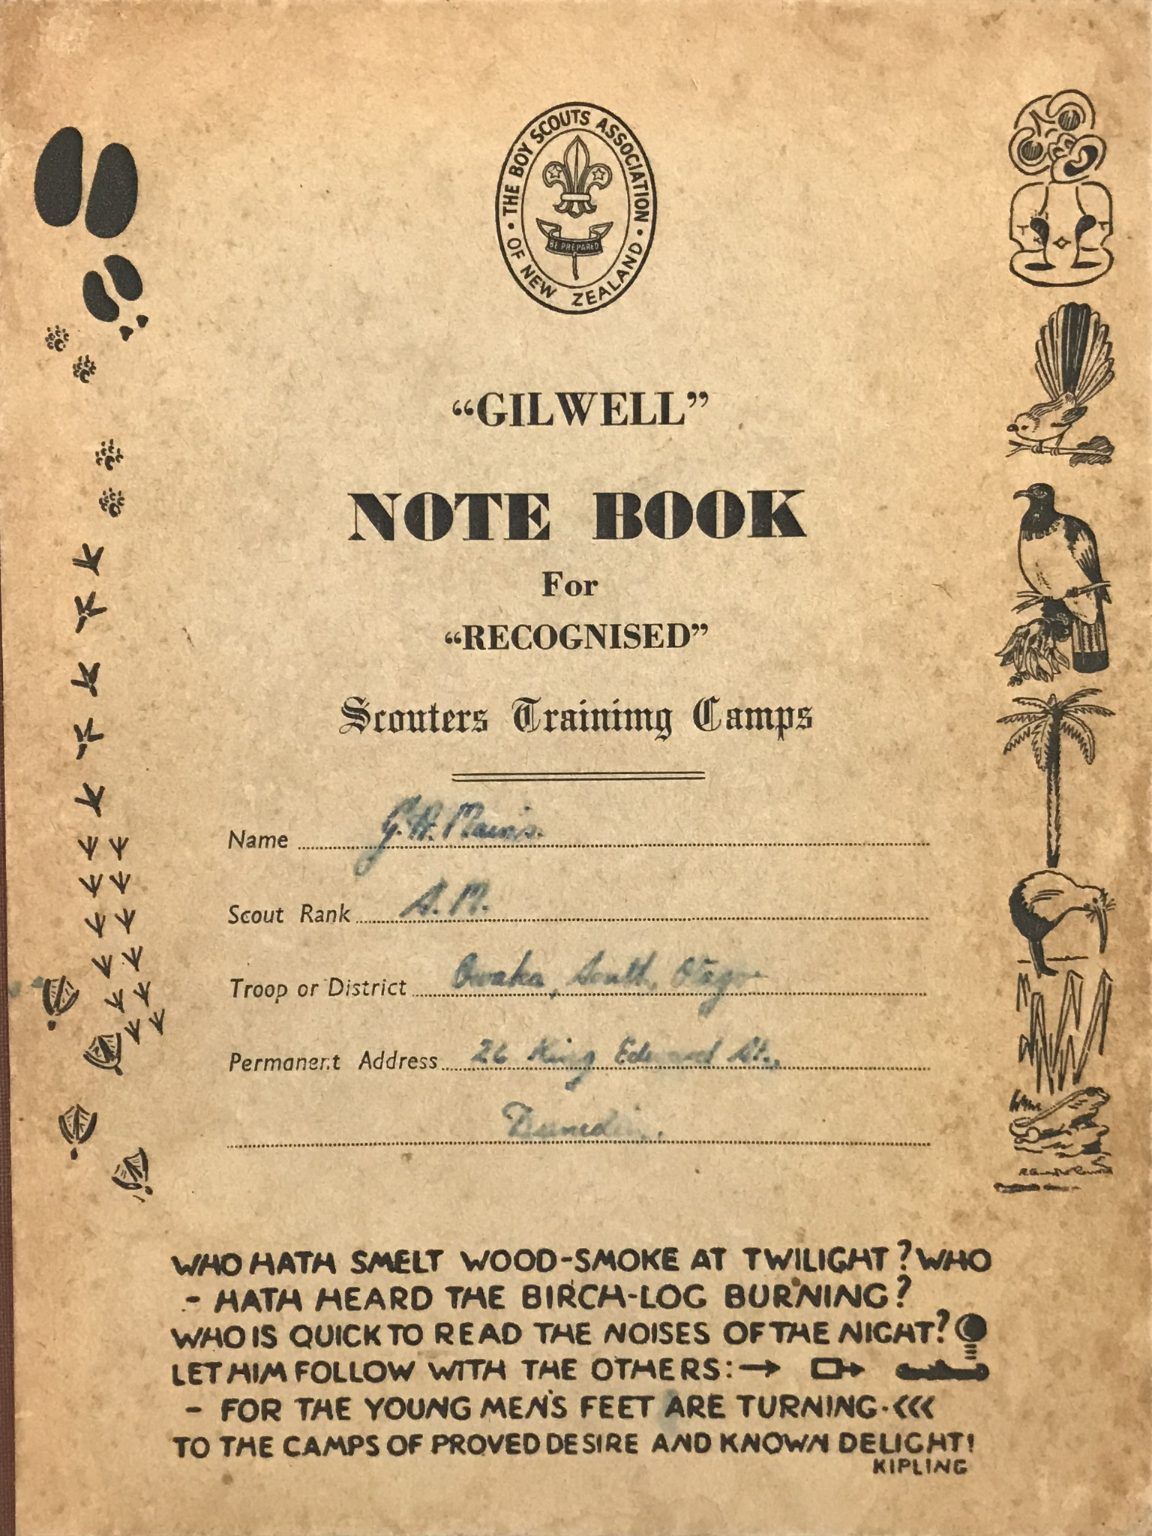 THE BOY SCOUTS ASSOCIATION
· OF NEW ZEALAND ·
BE PREPARED
“GILWELL”
NOTE BOOK
For
“RECOGNISED”
Scouters Trainimg Camps
Name G. H. Mains.
Scout Rank A. M.
Troop or District Owaka, South Otago
Permanent Address 26 King Edward St.,
Dunedin.
WHO HATH SMELT WOOD-SMOKE AT TWILIGHT? WHO
- HATH HEARD THE BIRCH-LOG BURNING?
WHO IS QUICK TO READ THE NOISES OF THE NIGHT?
LET HIM FOLLOW WITH THE OTHERS:
- FOR THE YOUNG MEN'S FEET ARE TURNING
TO THE CAMPS OF PROVED DESIRE AND KNOWN DELIGHT!
KIPLING